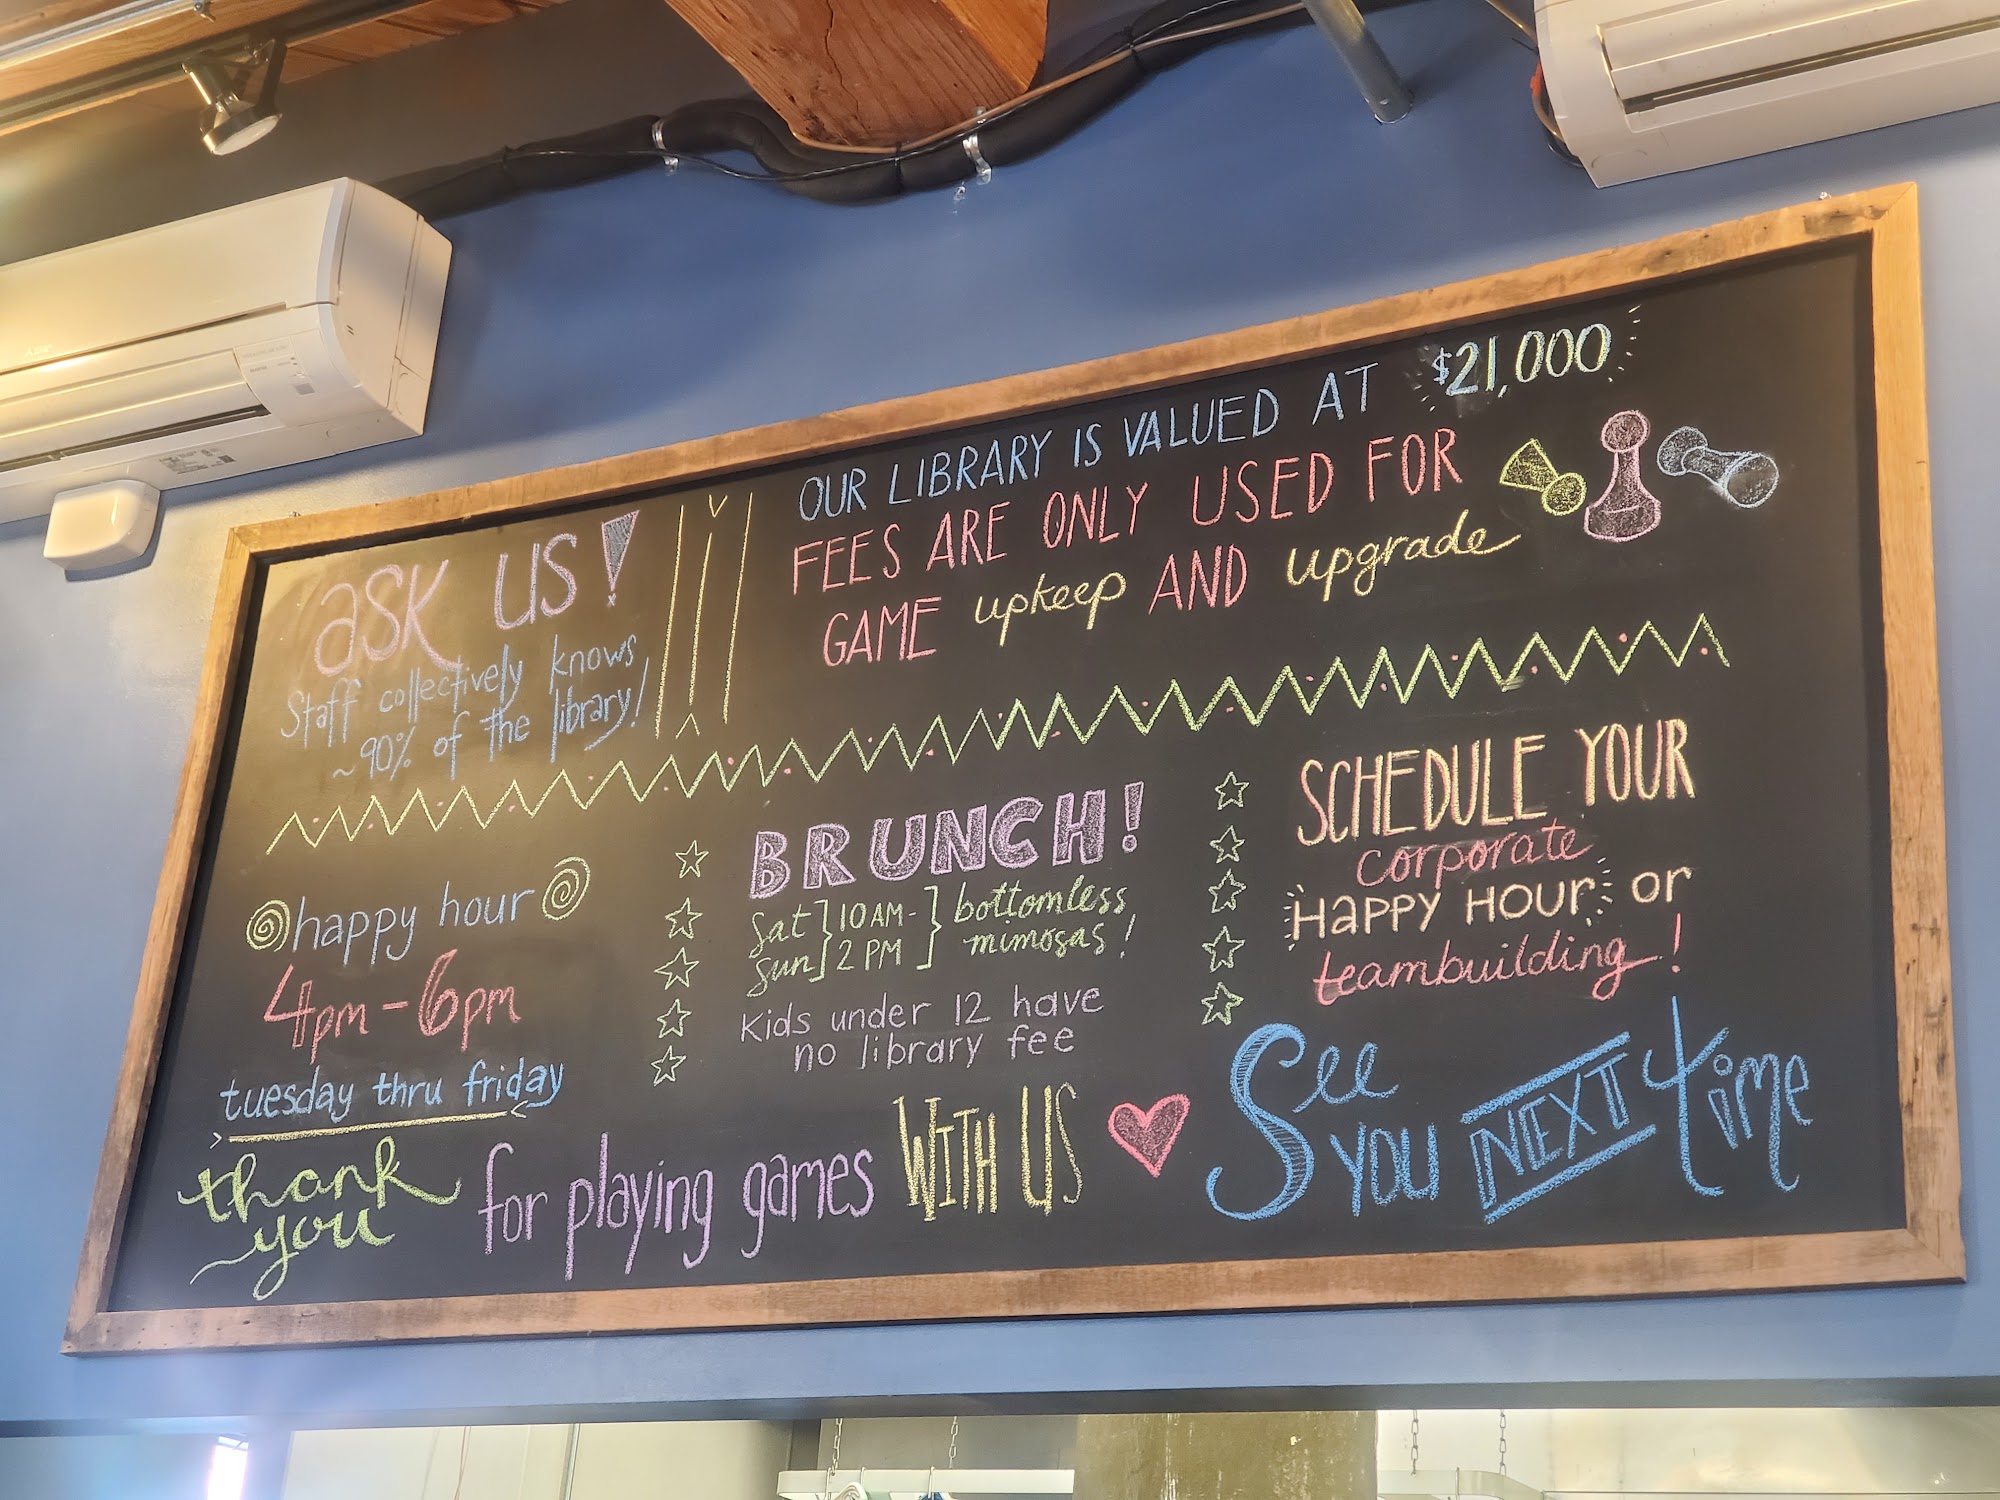 ask us!
Staff collectively knows
~90% of the library!
OUR LIBRARY IS VALUED AT $21,000
FEES ARE ONLY USED FOR
GAME upkeep AND upgrade
happy hour
4pm - 6pm
tuesday thru friday
BRUNCH!
Sat 10 AM- bottomless
Sun 2 PM mimosas!
Kids under 12 have
no library fee
SCHEDULE YOUR
corporate
HAPPY HOUR or
teambuilding!
thank
you
for playing games WITH US
See
YOU NEXT time